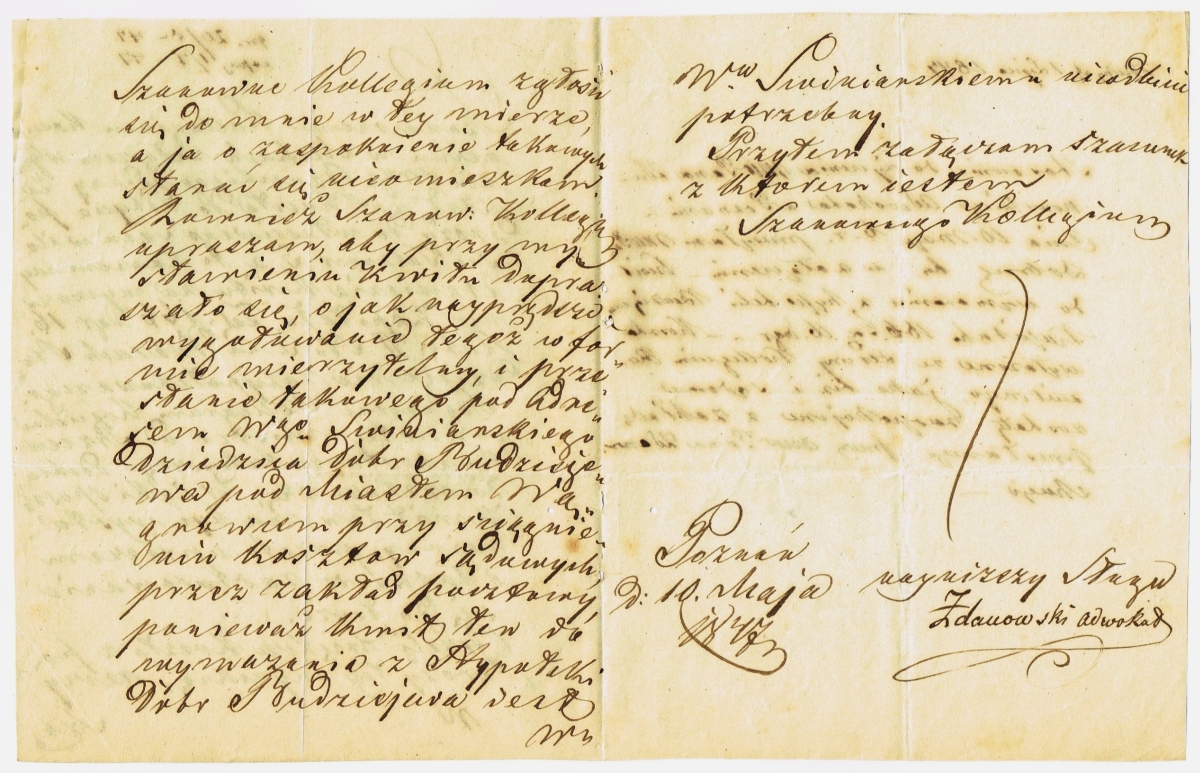 Szanowne Kollegium zgłosi
się do mnie w tey mierze,
a ja o zaspokoienie takowych
starać się nieomieszkam
Rownież Szanow: Kollegium
upraszam, aby przy wy„
stawieniu Kwitu dopra„
szało się, o jak nayprędsze
wygotowanie tegoż w for„
mie wierzytelny, i prze„
słanie takowego pod Adre„
sem Wgo Swiniarskiego
dziedzica Dobr Budzieje„
wa pod Miastem Wą„
growcem przy sciągnie„
niu Kosztow sądowych
przez zakład pocztowy,
ponieważ Kwit ten do
wymazania z Hypoteki
Dobr Budziejewa iest
Ww
Ww Swiniarskiemu nieodbicie
potrzebny.
Przytem załączam szacunek
z ktorem iestem
Szanownego Kollegium
Poznań
d: 10. Maja
1847
nayniższy Sługa
Zdanowski adwokat